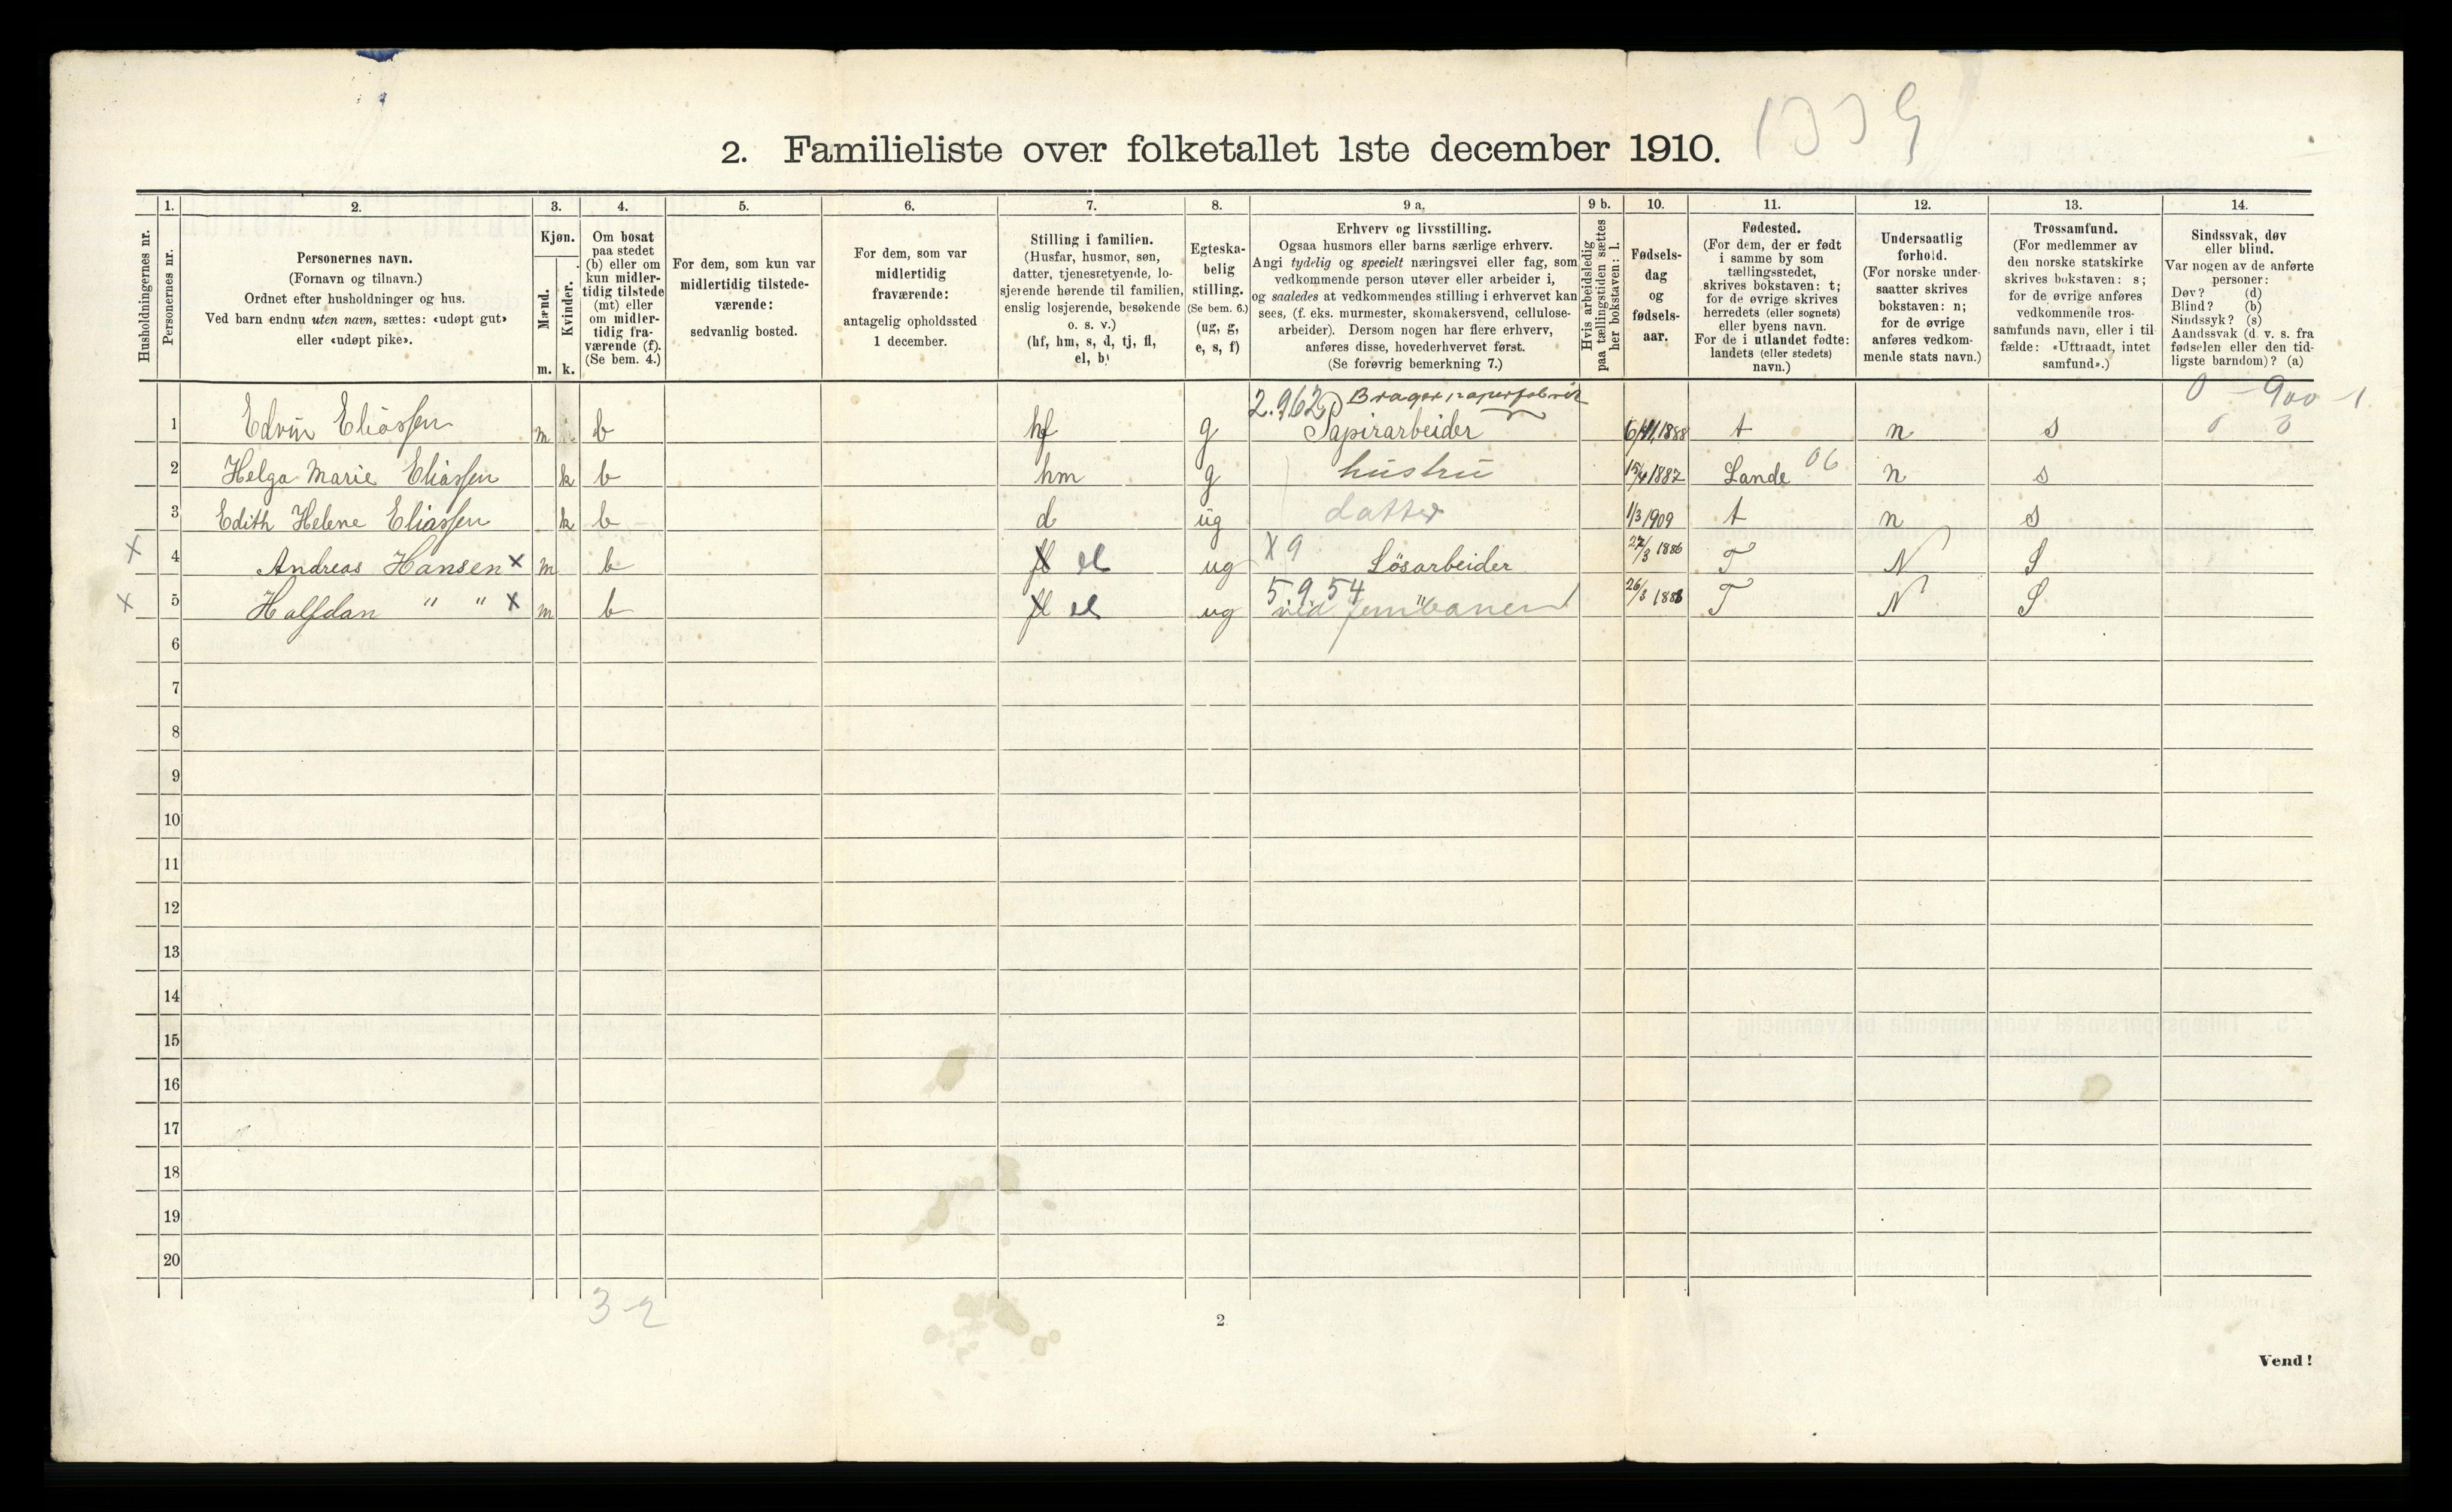 1339
2. Familieliste over folketallet 1ste december 1910.
Husholdningernes nr.
1.
Personernes nr.
2.
Personernes navn.
(Fornavn og tilnavn.)
Ordnet efter husholdninger og hus.
Ved barn endnu uten navn, sættes: «udøpt gut»
eller «udøpt pike».
3.
Kjøn.
Mænd.
Kvinder.
m. k.
4.
Om bosat
paa stedet
(b) eller om
kun midler-
tidig tilstede
(mt) eller
om midler-
tidig fra-
værende (f).
(Se bem. 4.)
5.
For dem, som kun var
midlertidig tilstede-
værende:
sedvanlig bosted.
6.
For dem, som var
midlertidig
fraværende:
antagelig opholdssted
1 december.
7.
Stilling i familien.
(Husfar, husmor, søn,
datter, tjenestetyende, lo-
sjerende hørende til familien,
enslig losjerende, besøkende
o. s. v.)
(hf, hm, s, d, tj, fl,
el, b)
8.
Egteska-
belig
stilling.
(Se bem. 6.)
(ug, g,
e, s, f)
9 a.
Erhverv og livsstilling.
Ogsaa husmors eller barns særlige erhverv.
Angi tydelig og specielt næringsvei eller fag, som
vedkommende person utøver eller arbeider i,
og saaledes at vedkommendes stilling i erhvervet kan
sees, (f. eks. murmester, skomakersvend, cellulose-
arbeider). Dersom nogen har flere erhverv,
anføres disse, hovederhvervet først.
(Se forøvrig bemerkning 7.)
9 b.
Hvis arbeidsledig
paa tællingstiden sættes
her bokstaven: l.
10.
Fødsels-
dag
og
fødsels-
aar.
11.
Fødested.
(For dem, der er født
i samme by som
tællingsstedet,
skrives bokstaven: t;
for de øvrige skrives
herredets (eller sognets)
eller byens navn.
For de i utlandet fødte:
landets (eller stedets)
navn.)
12.
Undersaatlig
forhold.
(For norske under-
saatter skrives
bokstaven: n;
for de øvrige
anføres vedkom-
mende stats navn.)
13.
Trossamfund.
(For medlemmer av
den norske statskirke
skrives bokstaven: s;
for de øvrige anføres
vedkommende tros-
samfunds navn, eller i til-
fælde: «Uttraadt, intet
samfund».)
14.
Sindssvak, døv
eller blind.
Var nogen av de anførte
personer:
Døv? (d)
Blind? (b)
Sindssyk? (s)
Aandssvak (d. v. s. fra
fødselen eller den tid-
ligste barndom)? (a)
2.962 0 - 900 - 1
1 Edvin Eliassen m b hf g Papirarbeider 1888 t n s
2 Helga Marie Eliassen k b hm g hustru 15/4 1887 Lande 06 n s
3 Edith Helene Eliassen k b d ug datter 1/3 1909 t n s
X 4 Andreas Hansen X m b fl el ug X9 Lösarbeider 27/3 1886 T N S
5954
X 5 Halfdan " " X m b fl el ug ved jernbanen 26/3 T N S
6
7
8
9
10
11
12
13
14
15
16
17
18
19
20
3-2
2
Vend!